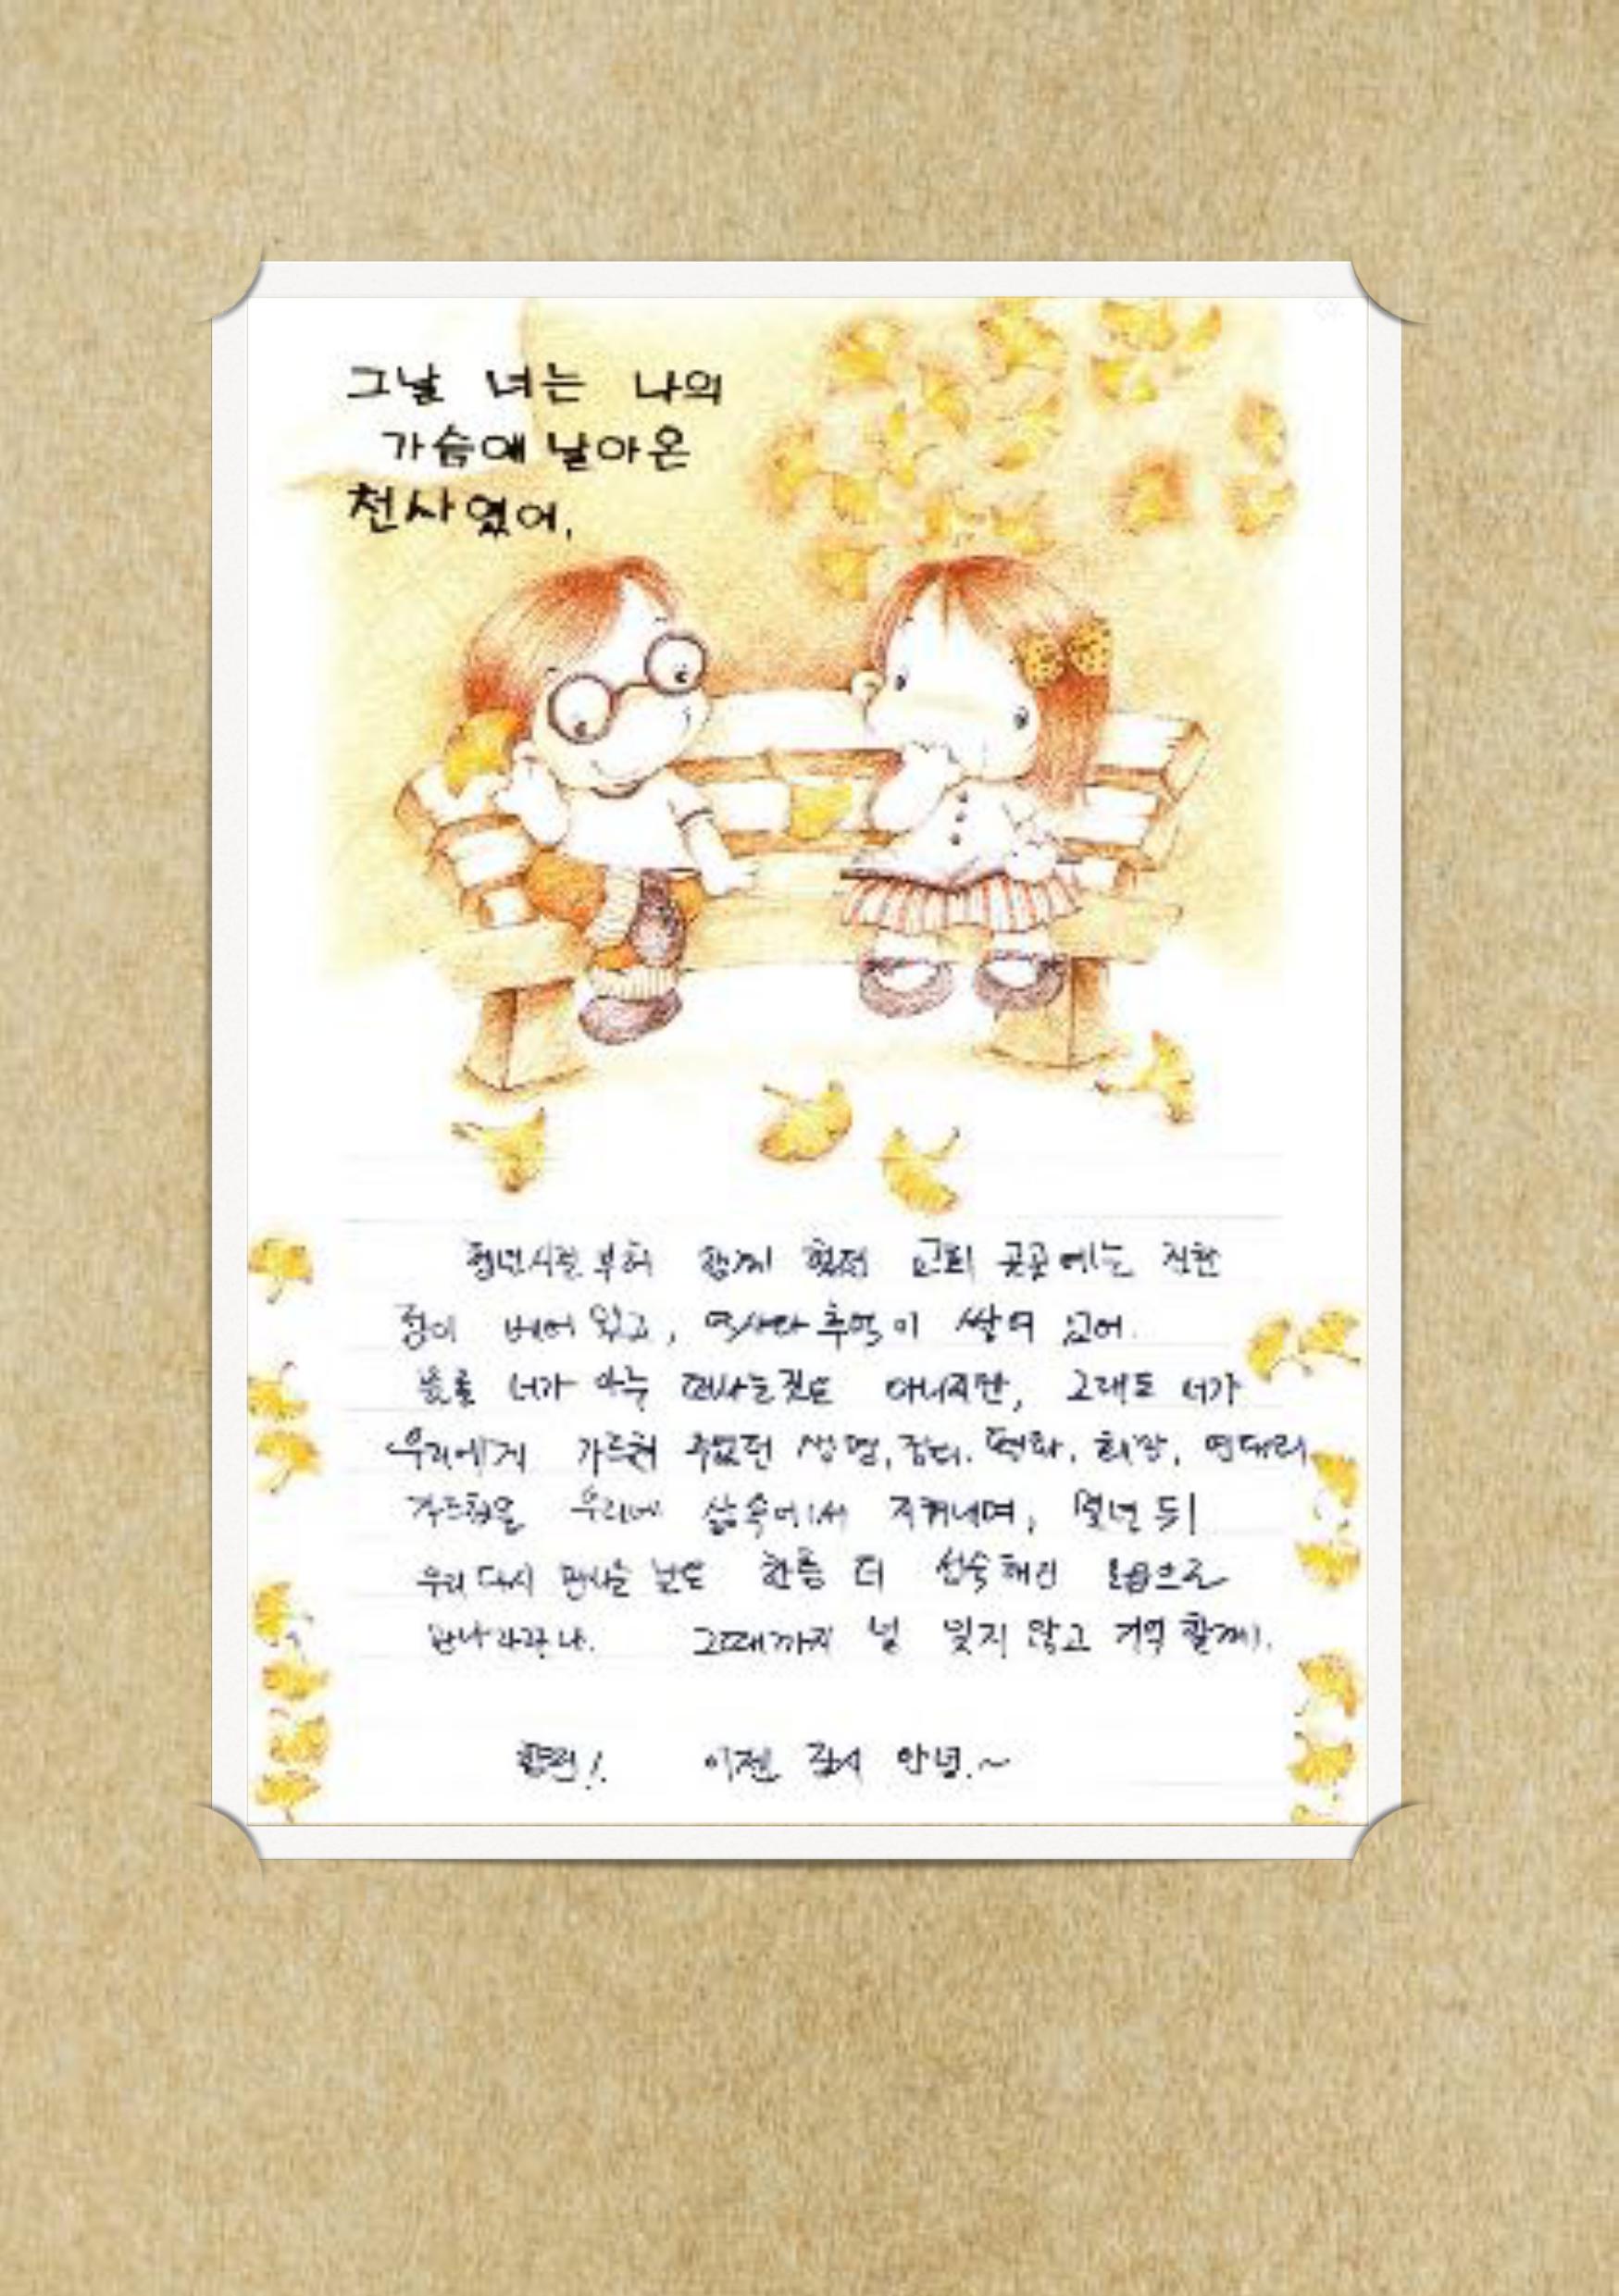 그날 너는 나의
가슴에 날아온
천사였어.
청년시절부터 함께 했던 교회 곳곳에는 진한
정이 베어 있고, 역사와 추억이 쌓여 있어.
물론 너가 아주 떠나는것은 아니지만, 그래도 너가
우리에게 가르쳐 주었던 생명, 평화, 희망, 연대의
가르침을 우리의 삶속에서 지켜내며, 몇년 뒤
우리 다시 만나는 날은 한층 더 성숙해진 모습으로
만나자꾸나. 그때까지 널 잊지 않고 기억 할께.
이젠 잠시 안녕.~